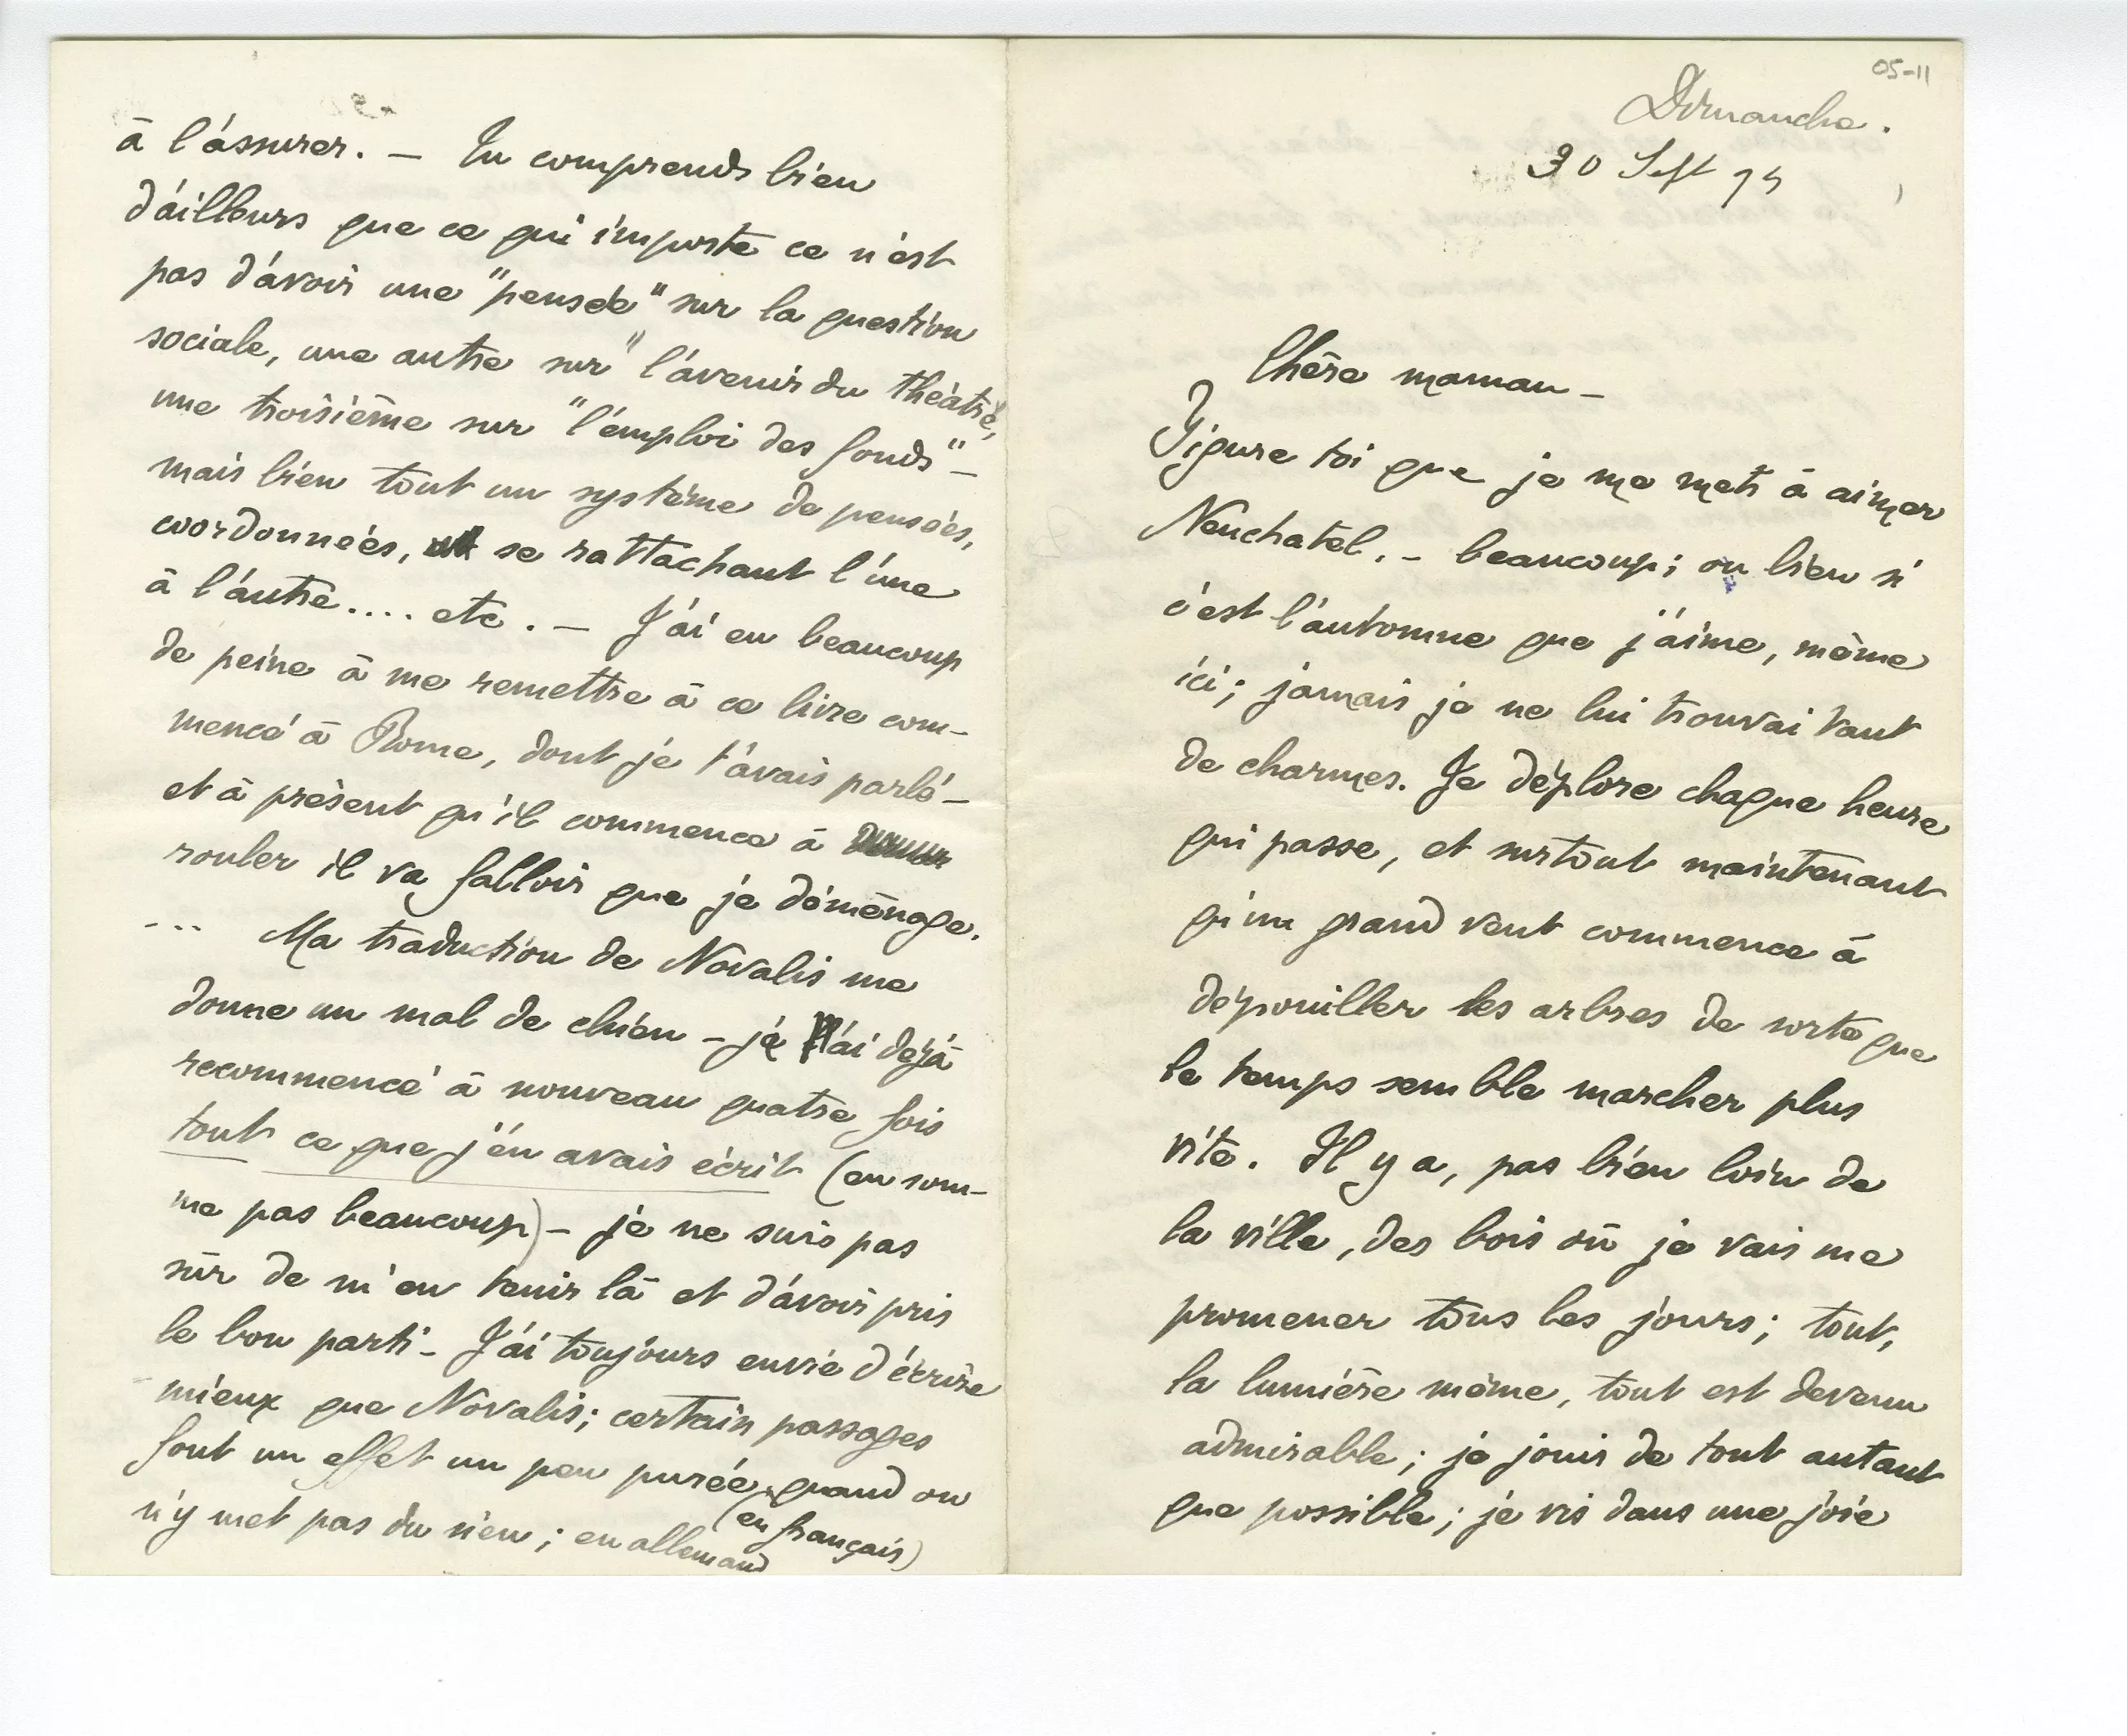 05-11
Dimanche.
30 Sept 94
Chère maman –
Figure toi que je me mets à aimer
Neuchatel. – beaucoup; ou bien si
c'est l'automne que j'aime, même
ici; jamais je ne lui trouvai tant
de charmes. Je déplore chaque heure
qui passe, et surtout maintenant
qu'un grand vent commence à
dépouiller les arbres de sorte que
le temps semble marcher plus
vite. Il y a, pas bien loin de
la ville, des bois où je vais me
promener tous les jours; tout,
la lumière même, tout est devenu
admirable; je jouis de tout autant
que possible; je vis dans une joie
à l'assurer. – Tu comprends bien
d'ailleurs que ce qui importe ce n'est
pas d'avoir une "pensée" sur la question
sociale, une autre sur "l'avenir du théatre,
une troisième sur "l'emploi des fonds" –
mais bien tout un système de pensées,
coordonnées, et se rattachant l'une
à l'autre.... etc. – J'ai eu beaucoup
de peine à me remettre à ce livre com-
mencé à Rome, dont je t'avais parlé –
et à présent qu'il commence à
rouler il va falloir que je déménage.
... Ma traduction de Novalis me
donne un mal de chien – je l'ai dejà
recommencé à nouveau quatre fois
tout ce que j'en avais écrit (en som-
me pas beaucoup) – je ne suis pas
sûr de m'en tenir là et d'avoir pris
le bon parti – J'ai toujours envie d'écrire
mieux que Novalis; certain passages
font un effet un peu purée, quand on
n'y met pas du sien; (en français)
en allemand